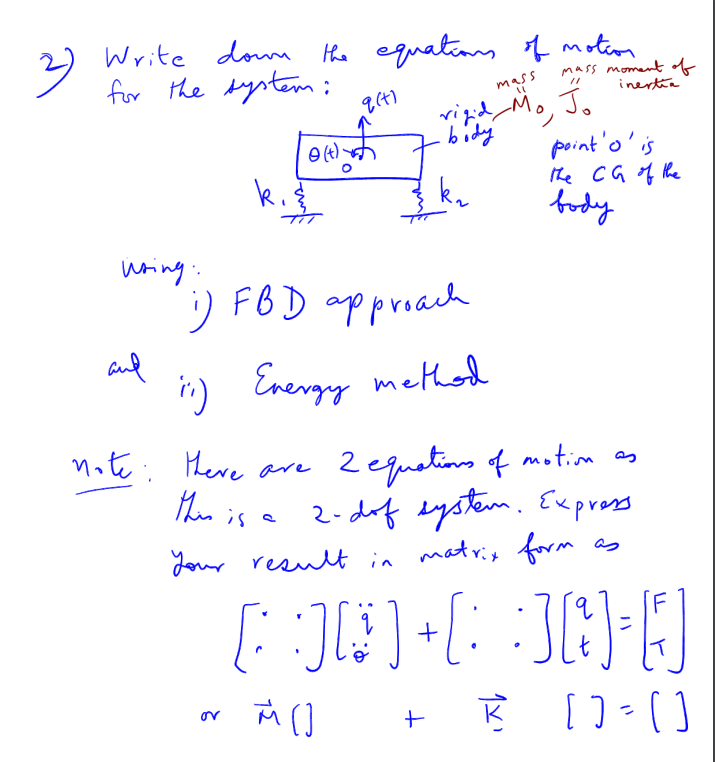 2) Write down the equations of motion
for the system :
mass   mass moment of inertia
"   "
M₀, J₀
rigid body
q(t)
θ(t)
o
k₁   k₂
point 'o' is
the CG of the
body
using :
i) FBD approach
and ii) Energy method
Note : There are 2 equations of motion as
this is a 2-dof system. Express
your result in matrix form as
[: :][q̈ θ̈] + [: :][q t] = [F T]
or M⃗ [] + K⃗ [] = []